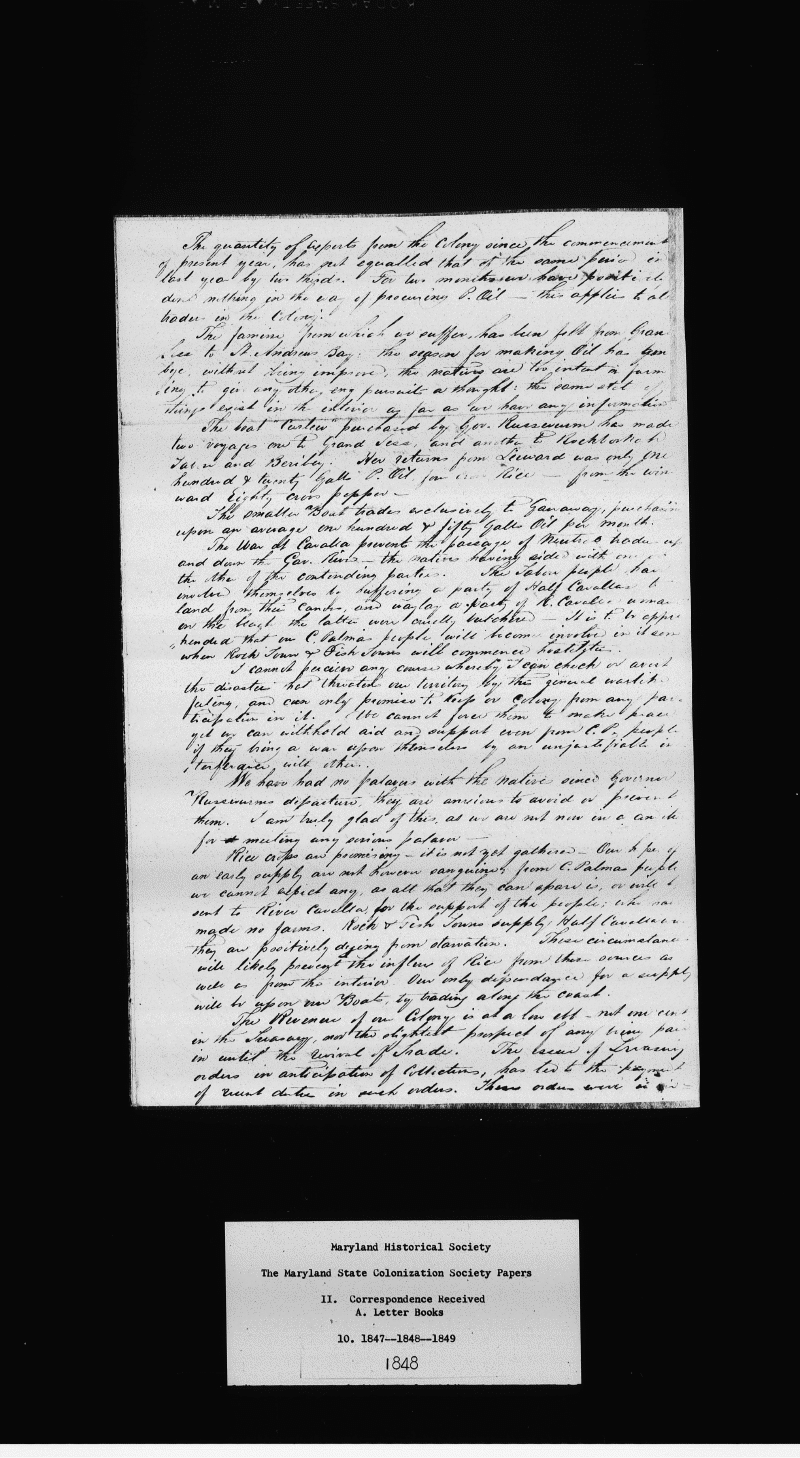 The quantity of exports from the Colony since the commencement
of present year, has not equalled that of the same period in
last year by two thirds. For two months we have positively
done nothing in the way of procuring P. Oil — this applies to all
traders in the Colony.
The famine from which we suffer, has been felt from Gran
Sess to St. Andrews Bay: the season for making Oil has gone
bye, without being improved, the natives are too intent in farm
ing to give any other pursuits a thought: the same state of
things exist in the interior as far as we have any information
The boat Curlew purchased by Gov. Russwurm has made
two voyages one to Grand Sess, and another to Rocktown
and Beriby. Her returns from Leeward was only one
hundred & twenty Galls P. Oil, four Rice — from the win
ward Eighty croos pepper —
The smaller Boat trades exclusively to Garraway, purchasing
upon an average one hundred & fifty Galls Oil per month.
The War at Cavalla prevents the passage of Neutral trade up
and down the Cav. River — the natives having sided with one or
the other of the contending parties. The Tabou people have
involved themselves by suffering a party of Half Cavallas to
land from their Canoes, and waylay a party of R. Cavalla women
on the beach the latter were cruelly butchered — It is to be appre
hended that our C. Palmas people will become involved in it soon
when Rock Town & Fish Towns will commence hostilities.
I cannot perceive any course whereby I can check or avert
the disasters that threaten our territory by this general warlike
feeling, and can only promise to keep our Colony from any par-
ticipation in it. We cannot force them to make peace
yet we can withhold aid and support even from C.P. people
if they bring a war upon themselves by an unjustifiable in
terference with other.
We have had no palavers with the natives since Governor
Russwurms departure, they are anxious to avoid or prevent
them. I am truly glad of this, as we are not now in a condition
for meeting any serious palaver —
Rice crops are promising — it is not yet gathered — Our hopes of
an early supply are not however sanguine; from C. Palmas people
we cannot expect any, as all that they can spare is, or will be
sent to River Cavalla, for the support of the people; who have
made no farms. Rock & Fish Towns supply Half Cavalla
they are positively dying from starvation. These circumstances
will likely prevent the influx of Rice from these sources as
well as from the interior. Our only dependance for a supply
will be upon our Boats, by trading along the coast.
The Revenue of our Colony is at a low ebb — not one cent
in the Treasury, nor the slightest prospect of any being paid
in until the revival of Trade. The issue of Treasury
orders in anticipation of Collections, has led to the payment
of recent duties in such orders. These orders were
Maryland Historical Society
The Maryland State Colonization Society Papers
II. Correspondence Received
A. Letter Books
10. 1847--1848--1849
1848